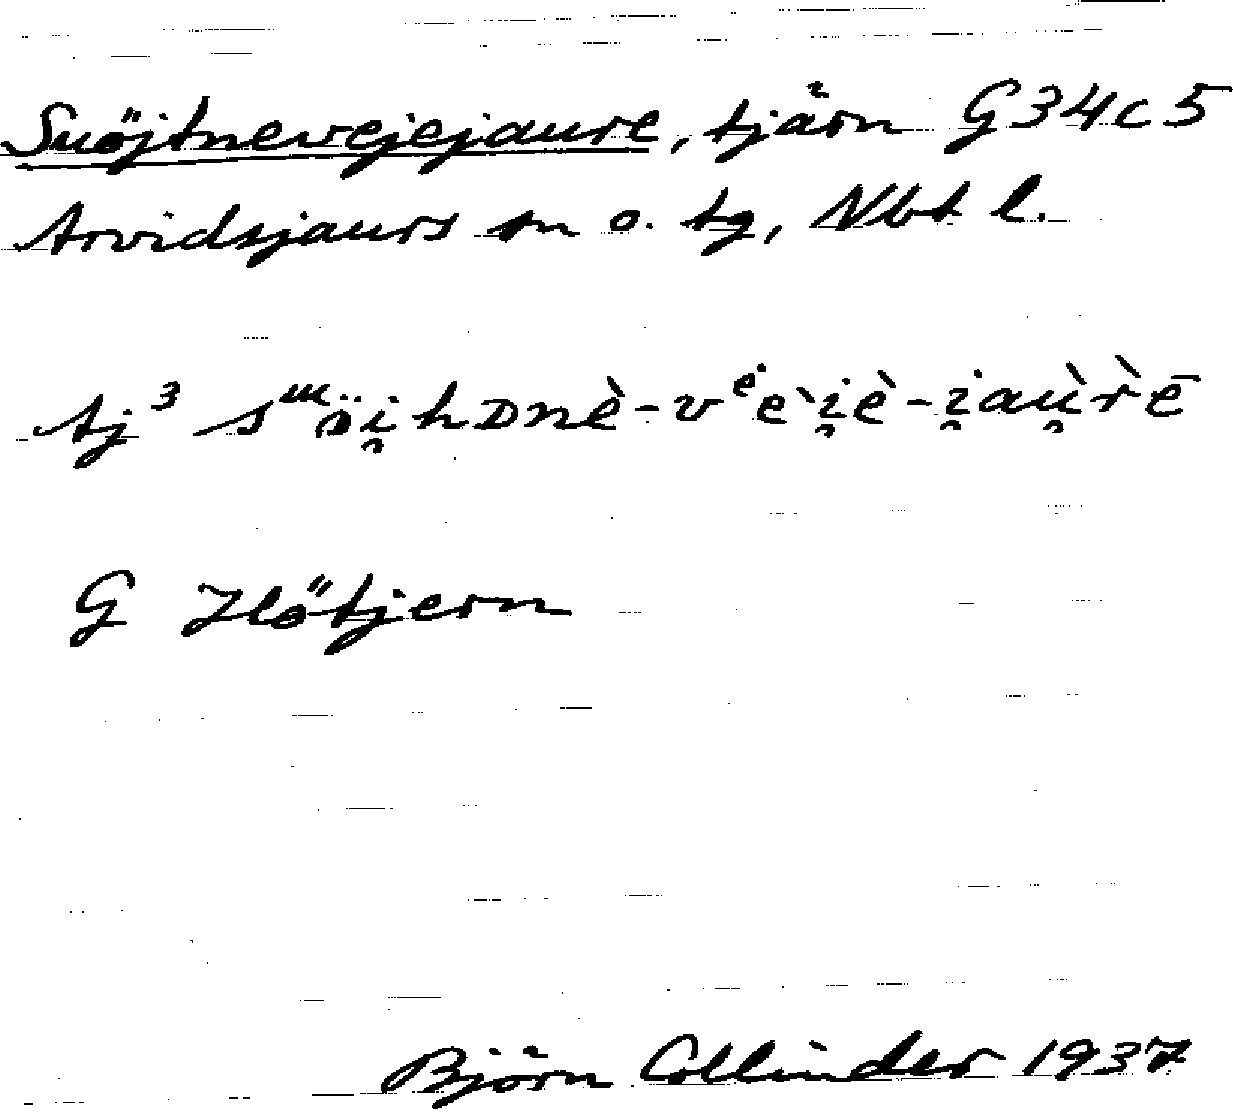 Suöjtnevejejaure, tjärn G34c5
Arvidsjaurs sn o. tg, Nbt l.
tj³ sᵚöi̯hDnè-vᵉèi̯è-i̯aù̯r̀ē
G Flötjern
Björn Collinder 1937